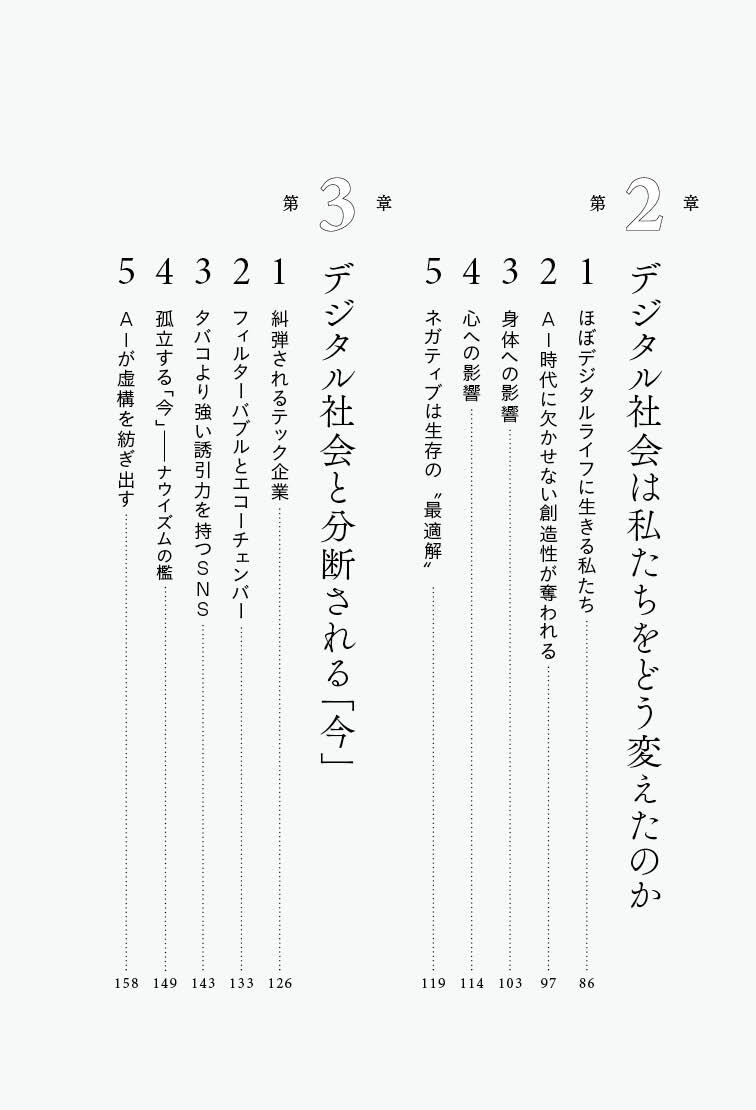 第2章
デジタル社会は私たちをどう変えたのか
1 ほぼデジタルライフに生きる私たち 86
2 AI時代に欠かせない創造性が奪われる 97
3 身体への影響 103
4 心への影響 114
5 ネガティブは生存の〝最適解〟 119
第3章
デジタル社会と分断される「今」
1 糾弾されるテック企業 126
2 フィルターバブルとエコーチェンバー 133
3 タバコより強い誘引力を持つSNS 143
4 孤立する「今」――ナウイズムの檻 149
5 AIが虚構を紡ぎ出す 158